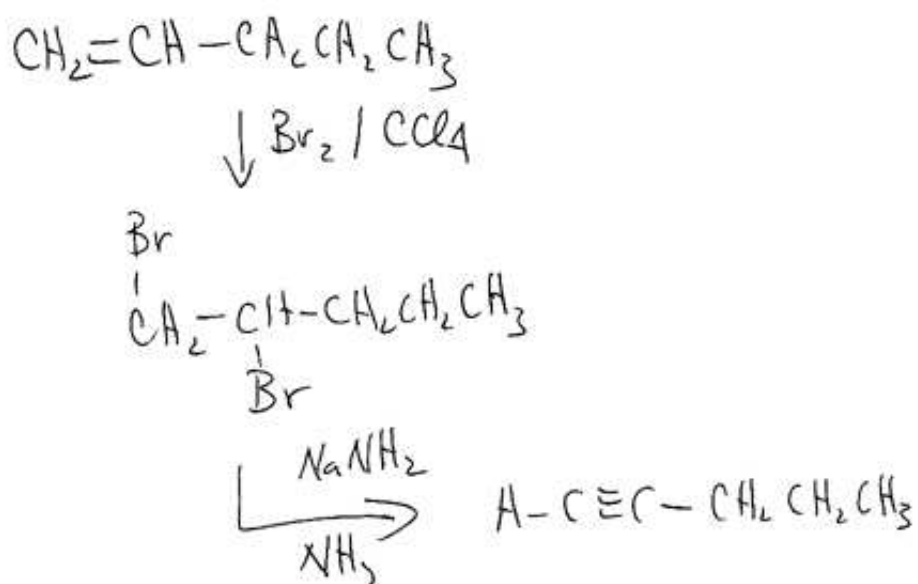 CH₂=CH-CH₂CH₂CH₃
Br₂ / CCl₄
Br
CH₂-CH-CH₂CH₂CH₃
Br
NaNH₂
NH₃
H-C≡C-CH₂CH₂CH₃